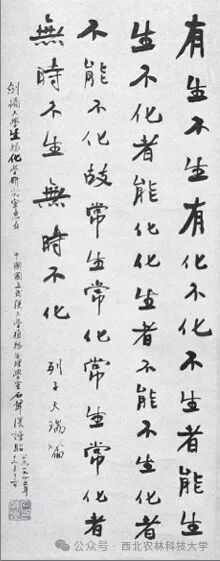 有生不生有化不化不生者能生
生不化者能化化生者不能不生化者
不能不化故常生常化常生常化者
無時不生無時不化 列子天瑞篇
劍橋大學生物化學研究室惠存
中國國立武漢大學植物生理學室石聲漢謹貽
公众号·西北农林科技大学